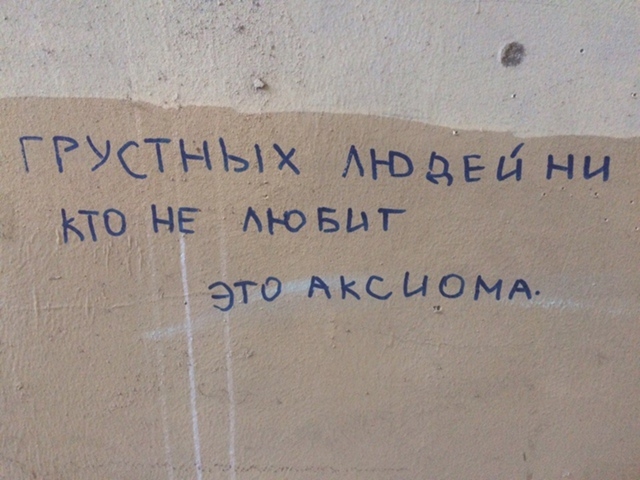 ГРУСТНЫХ ЛЮДЕЙ НИ
КТО НЕ ЛЮБИТ
ЭТО АКСИОМА.